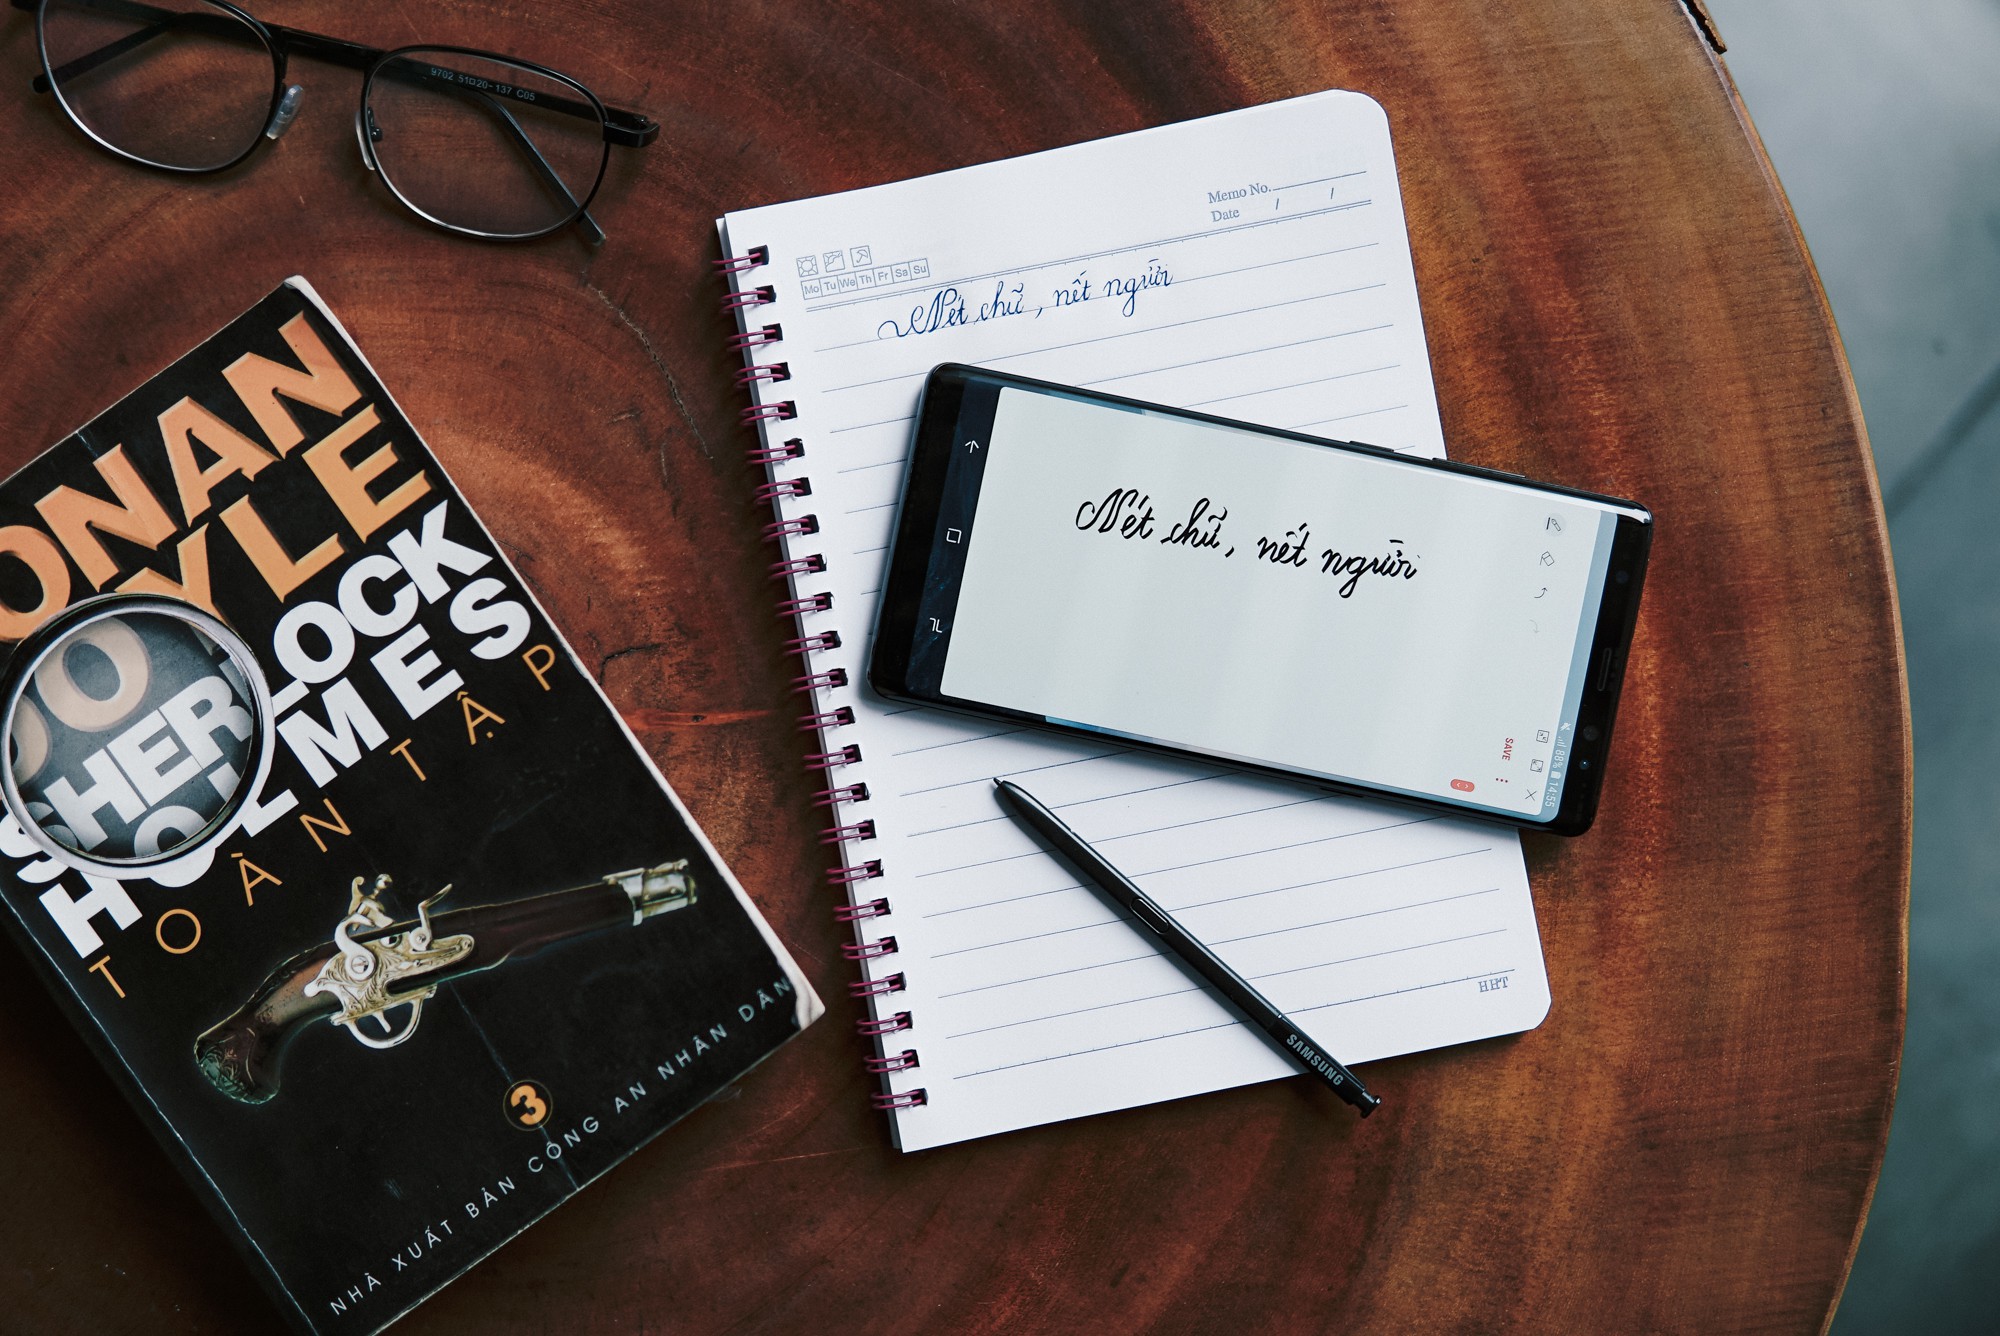 9702 51□20-137 C05
ONAN
YLE
SHERLOCK
HOLMES
TOÀN TẬP
3
NHÀ XUẤT BẢN CÔNG AN NHÂN DÂN
Memo No.
Date / /
Mo Tu We Th Fr Sa Su
Nét chữ, nết người
Nét chữ, nết người
SAVE
88% 14:55
SAMSUNG
HHT